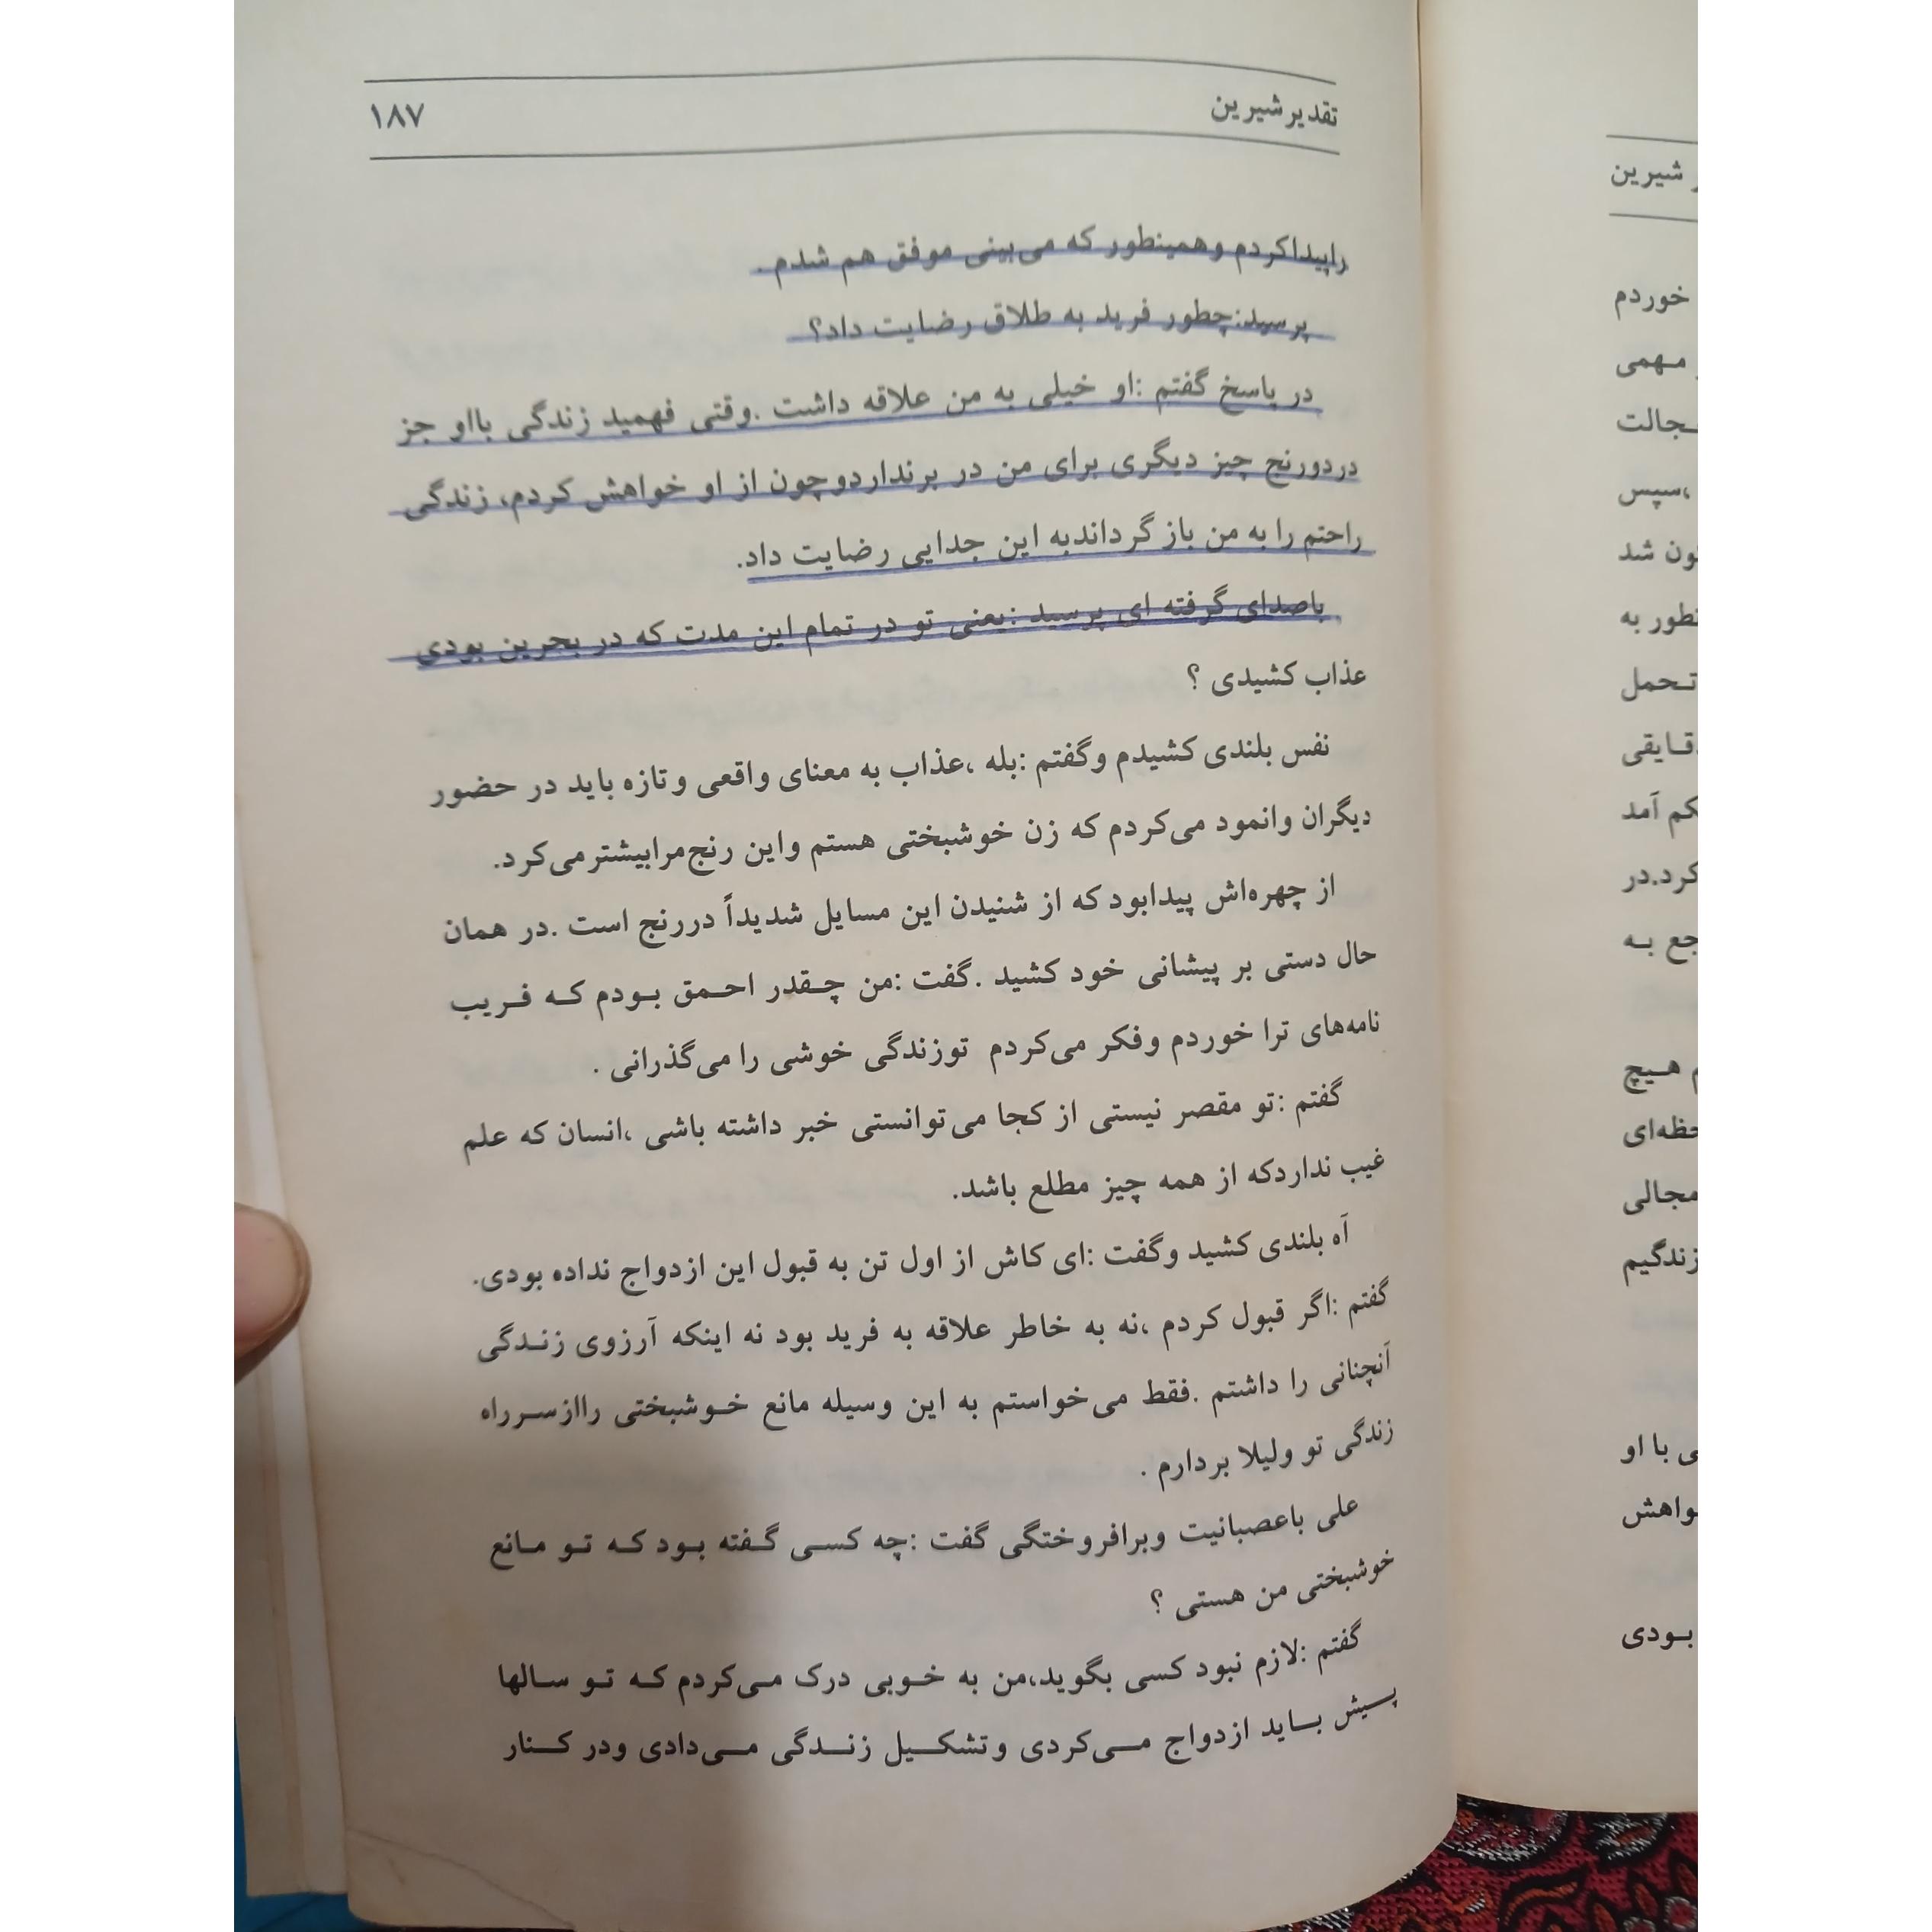 تقدیر شیرین
۱۸۷
را پیدا کردم و همینطور که می‌بینی موفق هم شدم .
پرسید: چطور فرید به طلاق رضایت داد؟
در پاسخ گفتم :او خیلی به من علاقه داشت .وقتی فهمید زندگی با او جز
درد و رنج چیز دیگری برای من در بر ندارد و چون از او خواهش کردم، زندگی
راحتم را به من باز گرداند به این جدایی رضایت داد.
با صدای گرفته ای پرسید :یعنی تو در تمام این مدت که در بحرین بودی
عذاب کشیدی ؟
نفس بلندی کشیدم و گفتم :بله ،عذاب به معنای واقعی و تازه باید در حضور
دیگران وانمود می‌کردم که زن خوشبختی هستم و این رنج مرا بیشتر می‌کرد.
از چهره‌اش پیدا بود که از شنیدن این مسایل شدیداً در رنج است .در همان
حال دستی بر پیشانی خود کشید .گفت :من چقدر احمق بودم که فریب
نامه‌های ترا خوردم و فکر می‌کردم تو زندگی خوشی را می‌گذرانی .
گفتم :تو مقصر نیستی از کجا می‌توانستی خبر داشته باشی ،انسان که علم
غیب ندارد که از همه چیز مطلع باشد.
آه بلندی کشید و گفت :ای کاش از اول تن به قبول این ازدواج نداده بودی.
گفتم :اگر قبول کردم ،نه به خاطر علاقه به فرید بود نه اینکه آرزوی زندگی
آنچنانی را داشتم .فقط می‌خواستم به این وسیله مانع خوشبختی را از سر راه
زندگی تو و لیلا بردارم .
علی با عصبانیت و برافروختگی گفت :چه کسی گفته بود که تو مانع
خوشبختی من هستی ؟
گفتم :لازم نبود کسی بگوید،من به خوبی درک می‌کردم که تو سالها
پیش باید ازدواج می‌کردی و تشکیل زندگی می‌دادی و در کنار
شیرین
خوردم
مهمی
،سپس
شد
به
تحمل
آمد
کرد.در
به
هیچ
زندگیم
با او
بودی